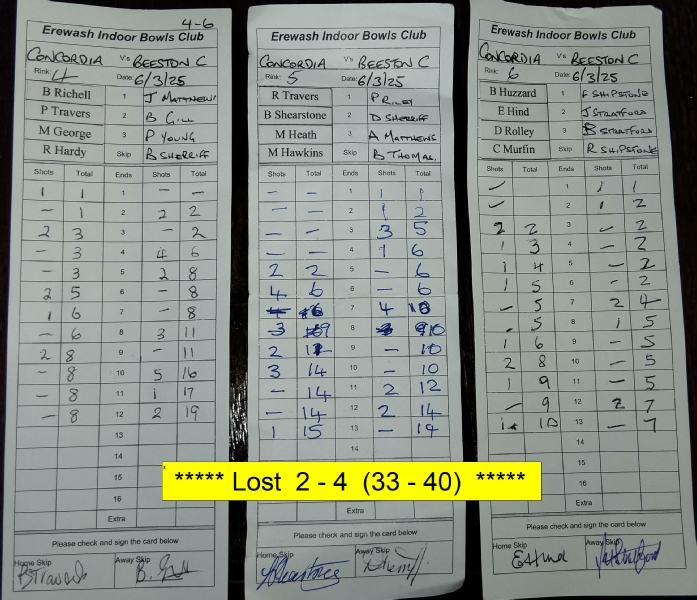 4-6
Erewash Indoor Bowls Club
CONCORDIA V's BEESTON C
Rink: 4 Date: 6/3/25
B Richell 1 J MATTHEWS
P Travers 2 B GILL
M George 3 P YOUNG
R Hardy Skip B SHERRIFF
Shots Total Ends Shots Total
1 1 1 - -
- 1 2 2 2
2 3 3 - 2
- 3 4 4 6
- 3 5 2 8
2 5 6 - 8
1 6 7 - 8
- 6 8 3 11
2 8 9 - 11
- 8 10 5 16
- 8 11 1 17
- 8 12 2 19
13
14
15
16
Extra
Please check and sign the card below
Home Skip Away Skip
Erewash Indoor Bowls Club
CONCORDIA V's BEESTON C
Rink: 5 Date: 6/3/25
R Travers 1 P RILEY
B Shearstone 2 D SHERRIFF
M Heath 3 A MATTHEWS
M Hawkins Skip B THOMAS.
Shots Total Ends Shots Total
- - 1 1 1
- - 2 1 2
- - 3 3 5
- - 4 1 6
2 2 5 - 6
4 6 6 - 6
7 4 10
3 9 8 10
2 11 9 - 10
3 14 10 - 10
- 14 11 2 12
- 14 12 2 14
1 15 13 - 14
14
Extra
Please check and sign the card below
Home Skip Away Skip
Erewash Indoor Bowls Club
CONCORDIA V's BEESTON C
Rink: 6 Date: 6/3/25
B Huzzard 1 F SHIPSTONE
E Hind 2 J STRATFORD
D Rolley 3 B STRATFORD
C Murfin Skip R SHIPSTONE
Shots Total Ends Shots Total
- 1 1 1
- 2 1 2
2 2 3 - 2
1 3 4 - 2
1 4 5 - 2
1 5 6 - 2
- 5 7 2 4
. 5 8 1 5
1 6 9 - 5
2 8 10 - 5
1 9 11 - 5
- 9 12 2 7
1 10 13 - 7
14
15
16
Extra
Please check and sign the card below
Home Skip Away Skip
EAHind
***** Lost 2 - 4 (33 - 40) *****